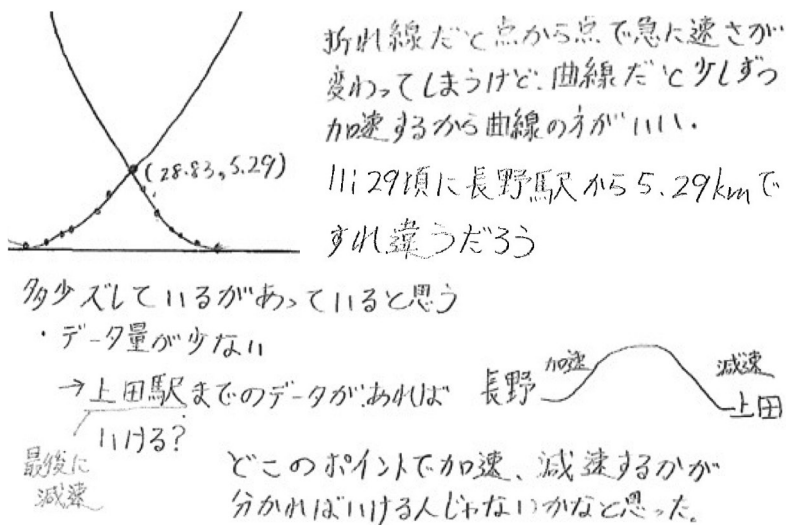 (28.83, 5.29)
折れ線だと点から点で急に速さが
変わってしまうけど、曲線だと少しずつ
加速するから曲線の方がいい.
11:29頃に長野駅から5.29kmで
すれ違うだろう
多少ズレているがあっていると思う
・データ量が少ない
→上田駅までのデータがあれば
いける?
最後に
減速
長野 加速 減速 上田
どこのポイントで加速、減速するかが
分かればいける人じゃないかなと思った。